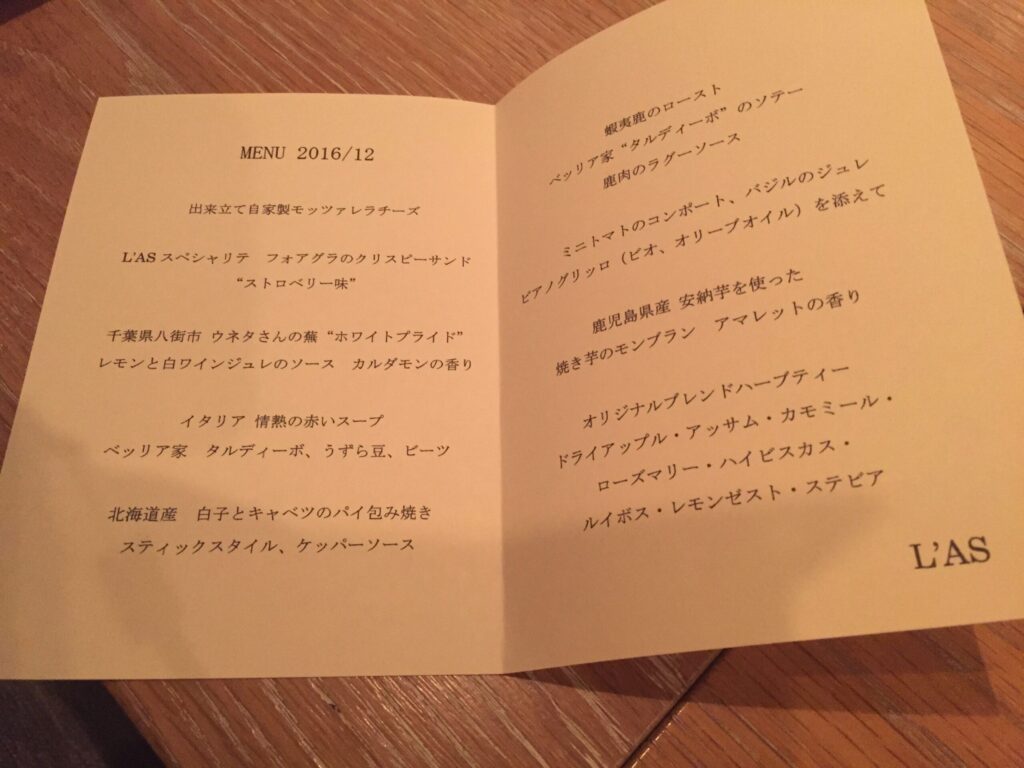 MENU 2016/12
出来立て自家製モッツァレラチーズ
L'AS スペシャリテ　フォアグラのクリスピーサンド
“ストロベリー味”
千葉県八街市 ウネタさんの蕪 “ホワイトプライド”
レモンと白ワインジュレのソース　カルダモンの香り
イタリア 情熱の赤いスープ
ベッリア家　タルディーボ、うずら豆、ビーツ
北海道産　白子とキャベツのパイ包み焼き
スティックスタイル、ケッパーソース
蝦夷鹿のロースト
ベッリア家 “タルディーボ” のソテー
鹿肉のラグーソース
ミニトマトのコンポート、バジルのジュレ
ビアノグリッロ（ビオ、オリーブオイル）を添えて
鹿児島県産 安納芋を使った
焼き芋のモンブラン　アマレットの香り
オリジナルブレンドハーブティー
ドライアップル・アッサム・カモミール・
ローズマリー・ハイビスカス・
ルイボス・レモンゼスト・ステビア
L'AS